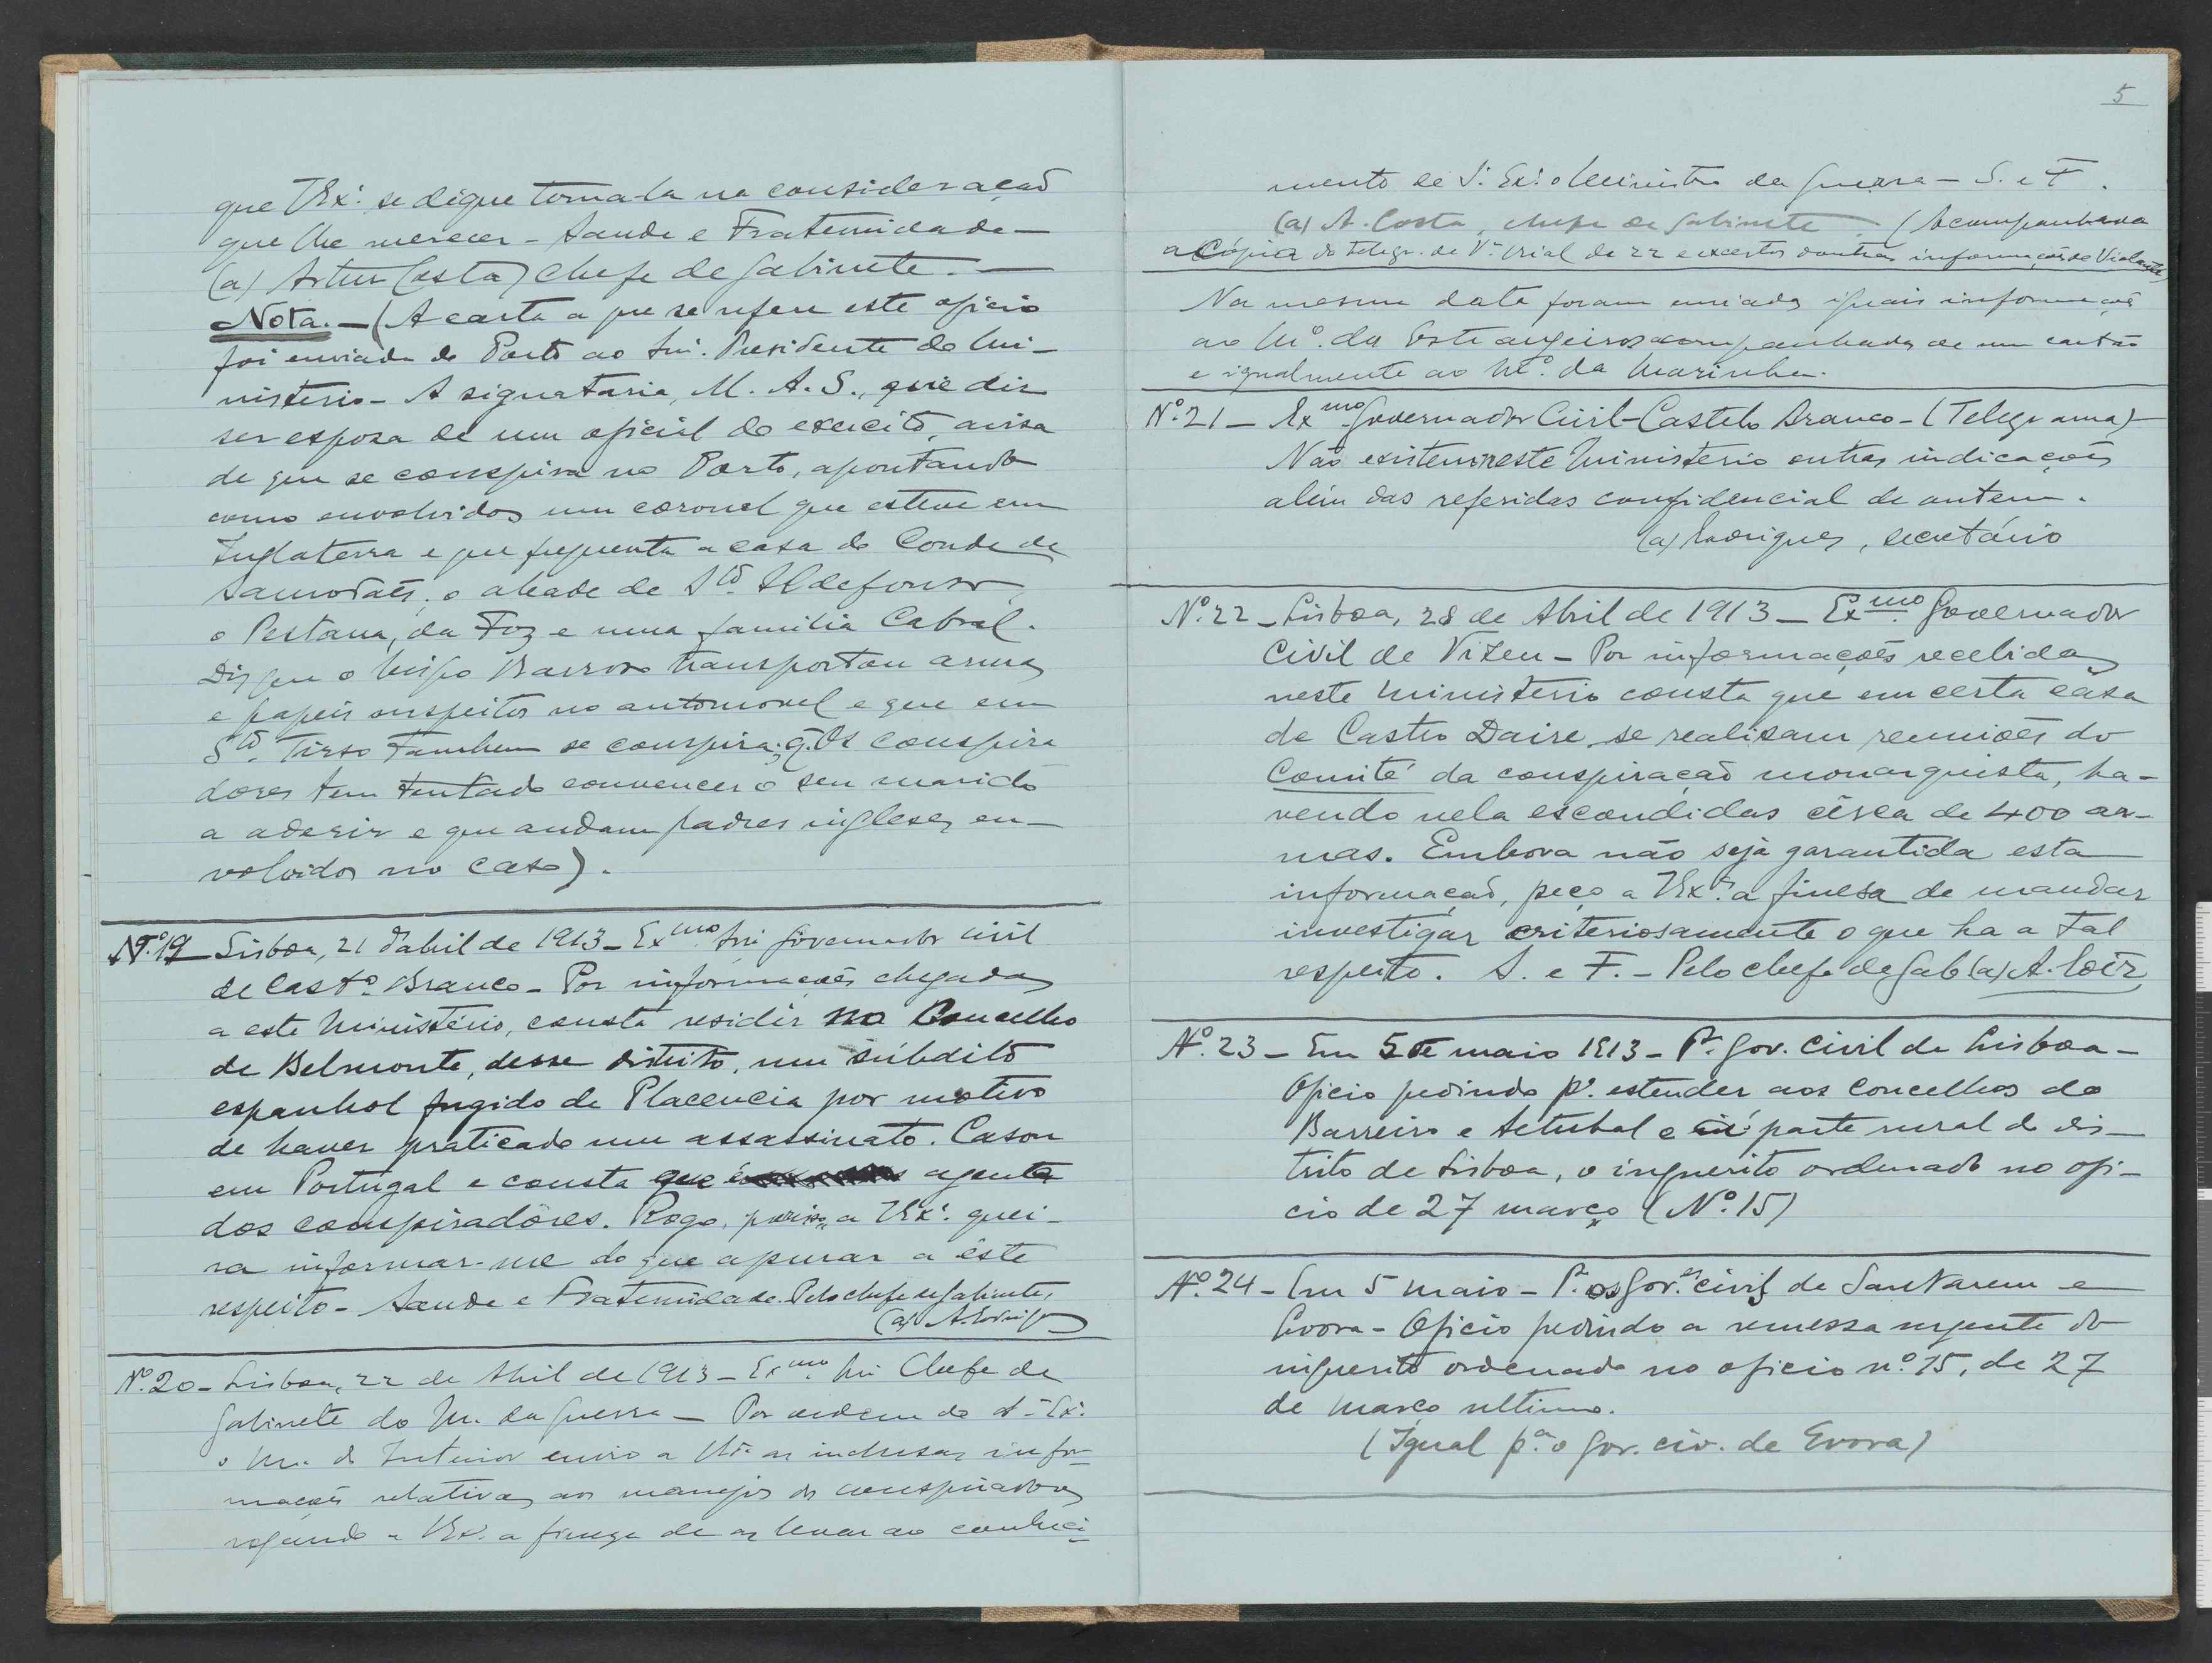 que VEx.ª se digne toma-la na consideração
que lhe merecer - Saude e Fraternidade -
(a) Artur Costa) chefe de gabinete. -
Nota. - (A carta a que se refere este oficio
foi enviada do Porto ao Snr. Presidente do Mi-
nisterio - A signataria, M. A. S., que diz
ser esposa de um oficial do exercito, avisa
de que se conspira no Porto, apontando
como envolvidos um coronel que esteve em
Inglaterra e que frequenta a casa do Conde de
Samodães, o abade de S.to Ildefonso,
o Pestana, da Foz e uma familia Cabral.
Diz que o bispo Barroso transportou armas
e papeis suspeitos no automovel e que em
S.to Tirso tambem se conspira; q. os conspira
dores tem tentado convencer o seu marido
a aderir e que andam padres inglezes en-
volvidos no caso).
Nº. 19 - Lisboa, 21 d'abril de 1913 - Exmo Snr governador civil
de Cast.º Branco - Por informações chegadas
a este Ministério, consta residir no Concelho
de Belmonte, desse distrito, um súbdito
espanhol fugido de Placencia por motivo
de haver praticado um assassinato. Casou
em Portugal e consta que é agente
dos conspiradôres. Rogo, por isso, a VEx.ª quei-
ra informar-me do que apurar a êste
respeito - Saude e Fraternidade. Pelo chefe de gabinete,
(a) A. Rodrigues
Nº. 20 - Lisboa, 22 de Abril de 1913 - Exmo. Snr Chefe de
Gabinete do M. da Guerra - Por ordem de S. Ex.ª
o M. do Interior envio a V. as inclusas infor-
mações relativas aos manejos dos conspiradores
rogando a VEx.ª a fineza de as levar ao conheci-
5
mento de S. Ex.ª o Ministro da Guerra - S. e F.
(a) A. Costa, chefe de Gabinete - (Acompanhava
a Cópia do telegr. de V.ª Real de 22 e excertos doutras informações de
Na mesma data foram enviadas iguais informações
ao M.º dos Estrangeiros acompanhadas de um cartão
e igualmente ao M.º da Marinha.
Nº. 21 - Exmo Governador Civil - Castelo Branco - (Telegrama) -
Não existem neste Ministerio outras indicações
além das referidas confidencial de ontem.
(a) Rodrigues, secretário
Nº. 22 - Lisboa, 28 de Abril de 1913 - Exmo. Governador
Civil de Vizeu - Por informações recebidas
neste Ministerio consta que em certa casa
de Castro Daire, se realisam reuniões do
Comité da conspiração monarquista, ha-
vendo nela escondidas cêrca de 400 ar-
mas. Embora não seja garantida esta
informação, peço a VEx.ª a finesa de mandar
investigar criteriosamente o que ha a tal
respeito. S. e F. - Pelo chefe de Gab (a) A.
Nº. 23 - Em 5 de maio 1913 - P.ª Gov. Civil de Lisboa -
Oficio pedindo p.ª estender aos concelhos do
Barreiro e Setubal e á parte rural do dis-
trito de Lisboa, o inquerito ordenado no ofi-
cio de 27 março (Nº. 15)
Nº. 24 - Em 5 maio - P.ª os Gov.es civis de Santarem e
Evora - Oficio pedindo a remessa urgente do
inquerito ordenado no oficio nº. 15, de 27
de Março ultimo.
(Igual p.ª o Gov. civ. de Evora)